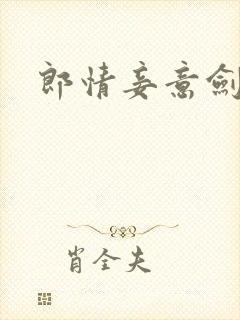 郎情妾意劍
肖全夫